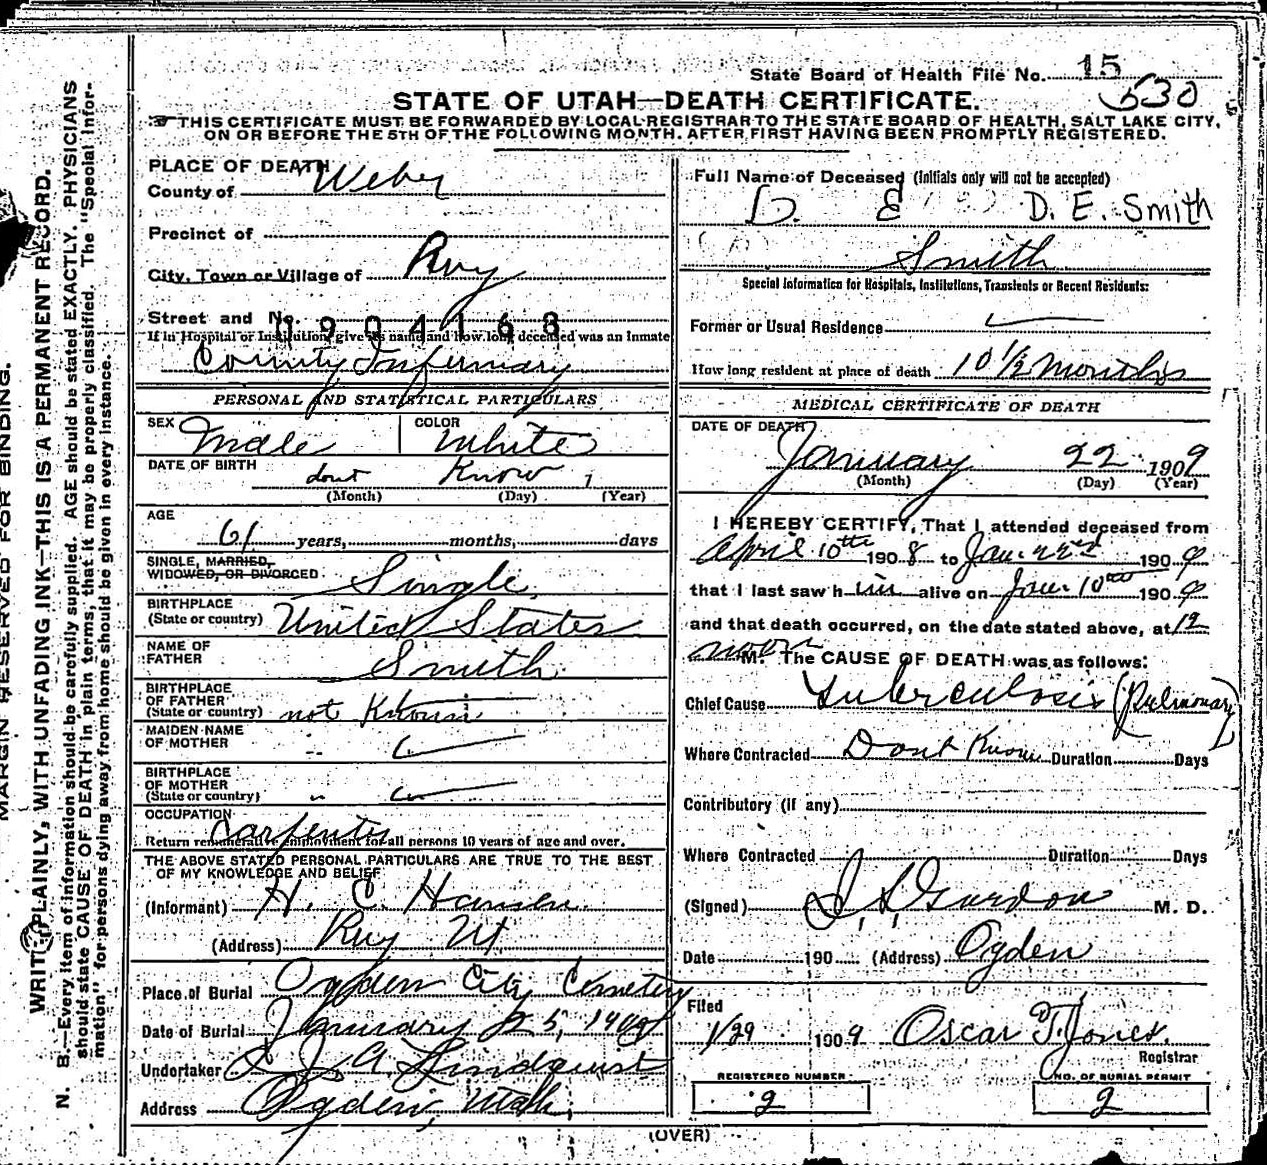 State Board of Health File No. 15
530
STATE OF UTAH—DEATH CERTIFICATE.
THIS CERTIFICATE MUST BE FORWARDED BY LOCAL REGISTRAR TO THE STATE BOARD OF HEALTH, SALT LAKE CITY,
ON OR BEFORE THE 5TH OF THE FOLLOWING MONTH. AFTER FIRST HAVING BEEN PROMPTLY REGISTERED.
PLACE OF DEATH
County of Weber
Precinct of
City, Town or Village of Roy
Street and No. 0904168
If in Hospital or Institution, give its name and how long deceased was an inmate
County Infirmary
PERSONAL AND STATISTICAL PARTICULARS
SEX Male COLOR White
DATE OF BIRTH dont Know
(Month) (Day) (Year)
AGE
61 years, months, days
SINGLE, MARRIED,
WIDOWED, OR DIVORCED Single
BIRTHPLACE
(State or country) United States
NAME OF
FATHER Smith
BIRTHPLACE
OF FATHER
(State or country) not Known
MAIDEN NAME
OF MOTHER "
BIRTHPLACE
OF MOTHER
(State or country) "
OCCUPATION Carpenter
Return remunerative employment for all persons 10 years of age and over.
THE ABOVE STATED PERSONAL PARTICULARS ARE TRUE TO THE BEST
OF MY KNOWLEDGE AND BELIEF
(Informant) H. C. Hansen
(Address) Roy Ut.
Place of Burial Ogden City Cemetery
Date of Burial January 25, 1909
Undertaker A. Lindquist
Address Ogden, Utah,
Full Name of Deceased (Initials only will not be accepted)
D. E D. E. Smith
Smith
Special Information for Hospitals, Institutions, Transients or Recent Residents:
Former or Usual Residence
How long resident at place of death 10 1/2 Months
MEDICAL CERTIFICATE OF DEATH
DATE OF DEATH
January 22 1909
(Month) (Day) (Year)
I HEREBY CERTIFY, That I attended deceased from
April 10th 1908 to Jan. 22nd 1909
that I last saw him alive on Jan. 10th 1909
and that death occurred, on the date stated above, at 12
noon M. The CAUSE OF DEATH was as follows:
Chief Cause Tuberculosis (Pulmonary)
Where Contracted Dont Know Duration Days
Contributory (if any)
Where Contracted Duration Days
(Signed) Gordon M. D.
Date 190 (Address) Ogden
Filed
1/29 1909 Oscar T. Jones.
Registrar
REGISTERED NUMBER NO. OF BURIAL PERMIT
2 2
(OVER)
MARGIN RESERVED FOR BINDING.
WRITE PLAINLY, WITH UNFADING INK—THIS IS A PERMANENT RECORD.
N. B.—Every item of information should be carefully supplied. AGE should be stated EXACTLY. PHYSICIANS
should state CAUSE OF DEATH in plain terms, that it may be properly classified. The "Special Infor-
mation" for persons dying away from home should be given in every instance.